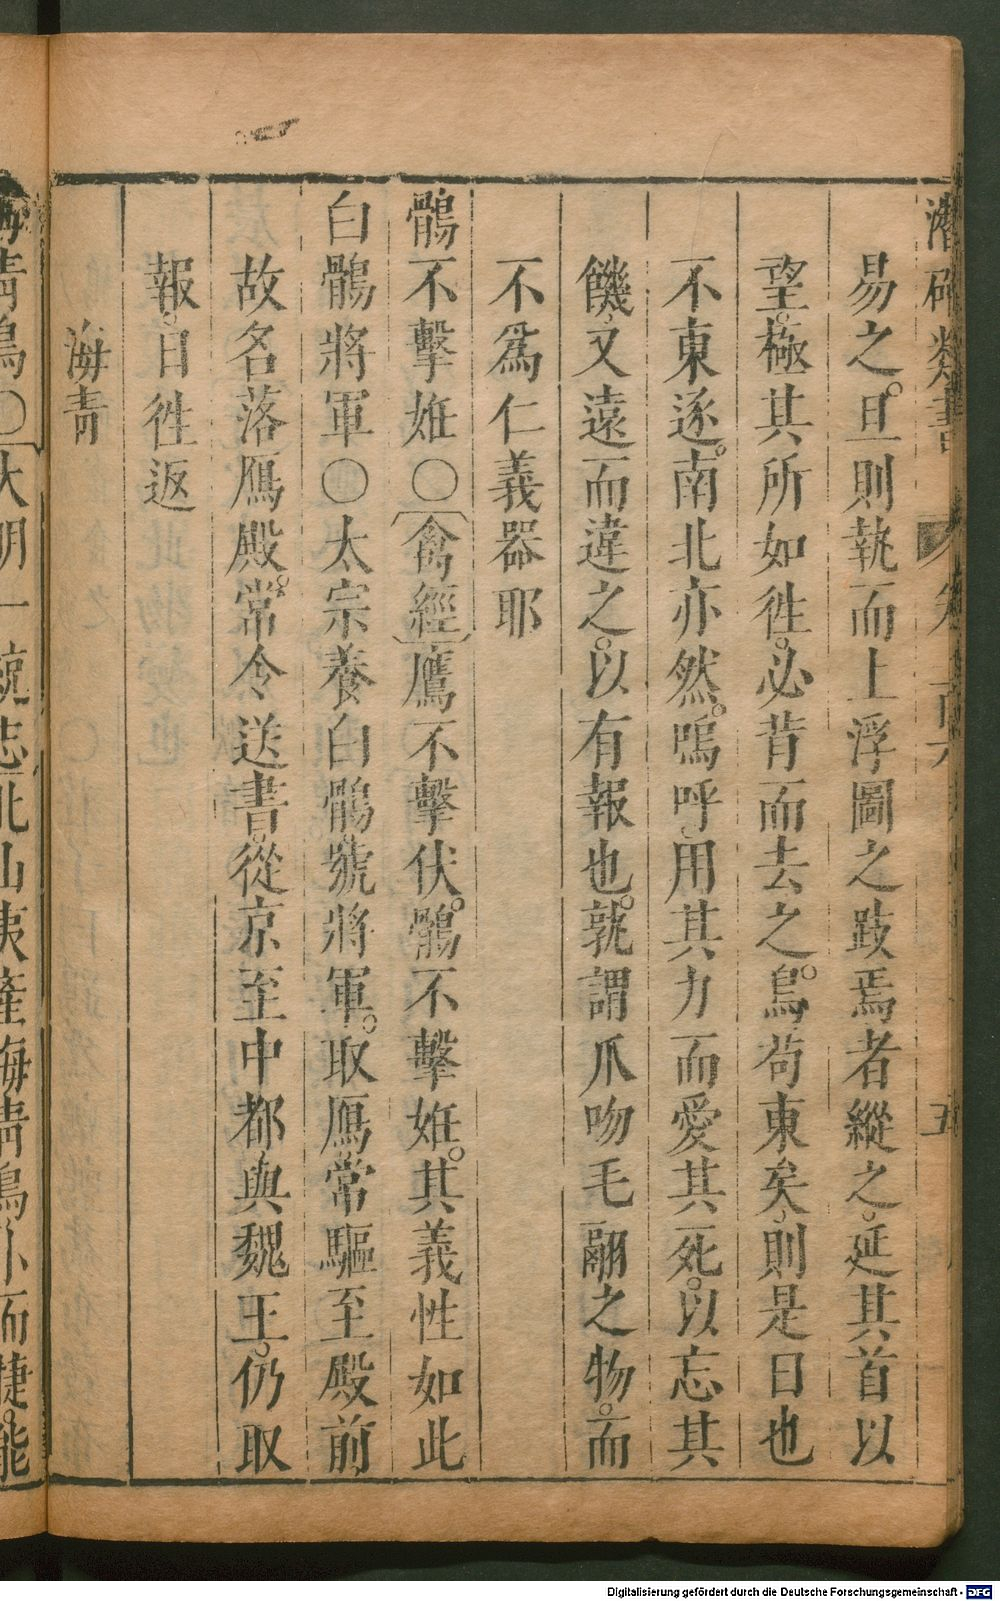 潛確類書 卷一百六 五
易之。旦則執而上浮圖之跂焉者縱之。延其首以
望。極其所如徃。必背而去之。鳥苟東矣、則是日也
不東逐。南北亦然。嗚呼。用其力而愛其死。以忘其
饑、又遠而違之。以有報也。孰謂爪吻毛翮之物。而
不爲仁義器耶
鶻不擊姙〇禽經鷹不擊伏。鶻不擊姙。其義性如此
白鶻將軍〇太宗養白鶻。號將軍。取鴈常驅至殿前
故名落鴈殿。常令送書。從京至中都與魏王。仍取
報。日徃返
海青
海靑鳥〇大明一統志北山夷産海靑鳥小而㨗。能
Digitalisierung gefördert durch die Deutsche Forschungsgemeinschaft - DFG